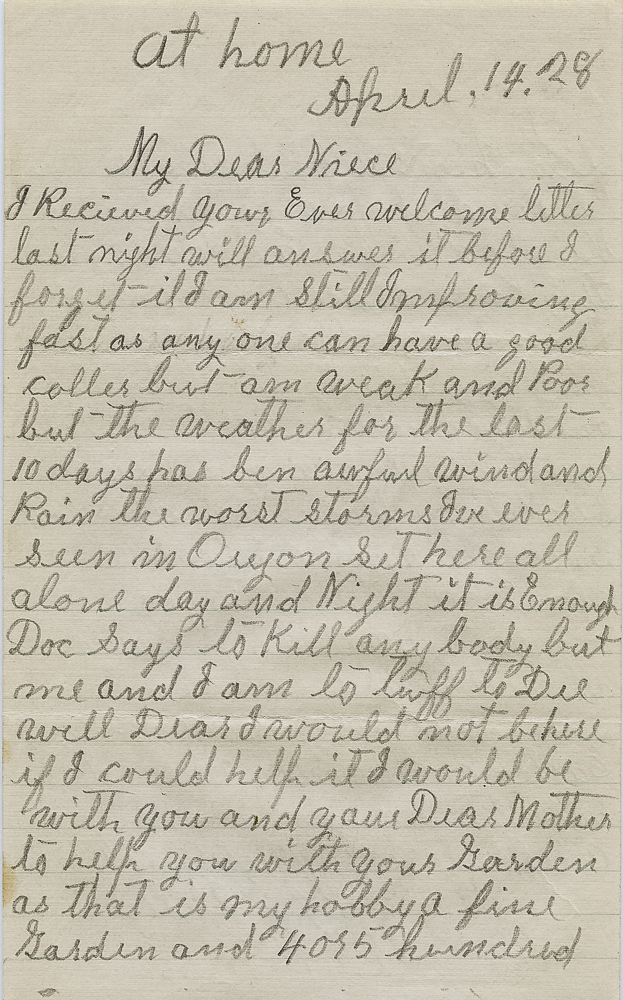 at home
April. 14. 28
My Dear Niece
I Recieved your Ever welcome letter
last night will answer it before I
forget it I am still Improving
fast as any one can have a good
coller but am weak and Poor
but the weather for the last
10 days has ben awful wind and
Rain the worst storms Ive ever
seen in Oregon set here all
alone day and Night it is Enough
Doc says to Kill any body but
me and I am to tuff to Die
well Dear I would not be here
if I could help it I would be
with you and your Dear Mother
to help you with your Garden
as that is my hobby a fine
Garden and 4 or 5 hundred